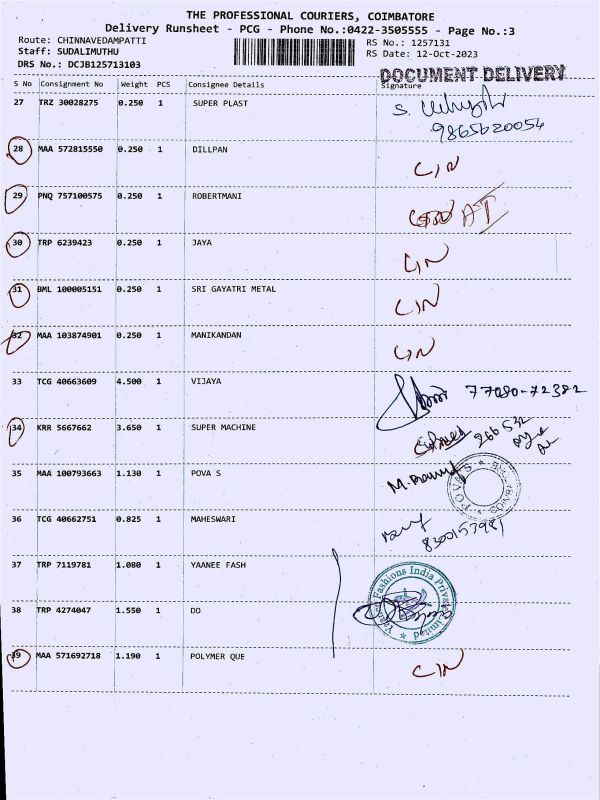 THE PROFESSIONAL COURIERS, COIMBATORE
Delivery Runsheet - PCG - Phone No.:0422-3505555 - Page No.:3
Route: CHINNAVEDAMPATTI RS No.: 1257131
Staff: SUDALIMUTHU RS Date: 12-Oct-2023
DRS No.: DCJB125713103
DOCUMENT DELIVERY
S No Consignment No Weight PCS Consignee Details Signature
27 TRZ 30028275 0.250 1 SUPER PLAST
9865620054
28 MAA 572815550 0.250 1 DILLPAN C/N
29 PNQ 757100575 0.250 1 ROBERTMANI
30 TRP 6239423 0.250 1 JAYA C/N
31 BML 100005151 0.250 1 SRI GAYATRI METAL C/N
32 MAA 103874901 0.250 1 MANIKANDAN C/N
33 TCG 40663609 4.500 1 VIJAYA 77080-72382
34 KRR 5667662 3.650 1 SUPER MACHINE
35 MAA 100793663 1.130 1 POVA S POVA'S
36 TCG 40662751 0.825 1 MAHESWARI
8300153981
37 TRP 7119781 1.080 1 YAANEE FASH
38 TRP 4274047 1.550 1 DO
39 MAA 571692718 1.190 1 POLYMER QUE C/N